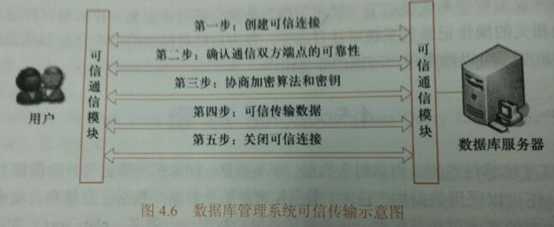 第一步：创建可信连接
第二步：确认通信双方端点的可靠性
第三步：协商加密算法和密钥
第四步：可信传输数据
第五步：关闭可信连接
可信通信模块
可信通信模块
用户
数据库服务器
图 4.6 数据库管理系统可信传输示意图